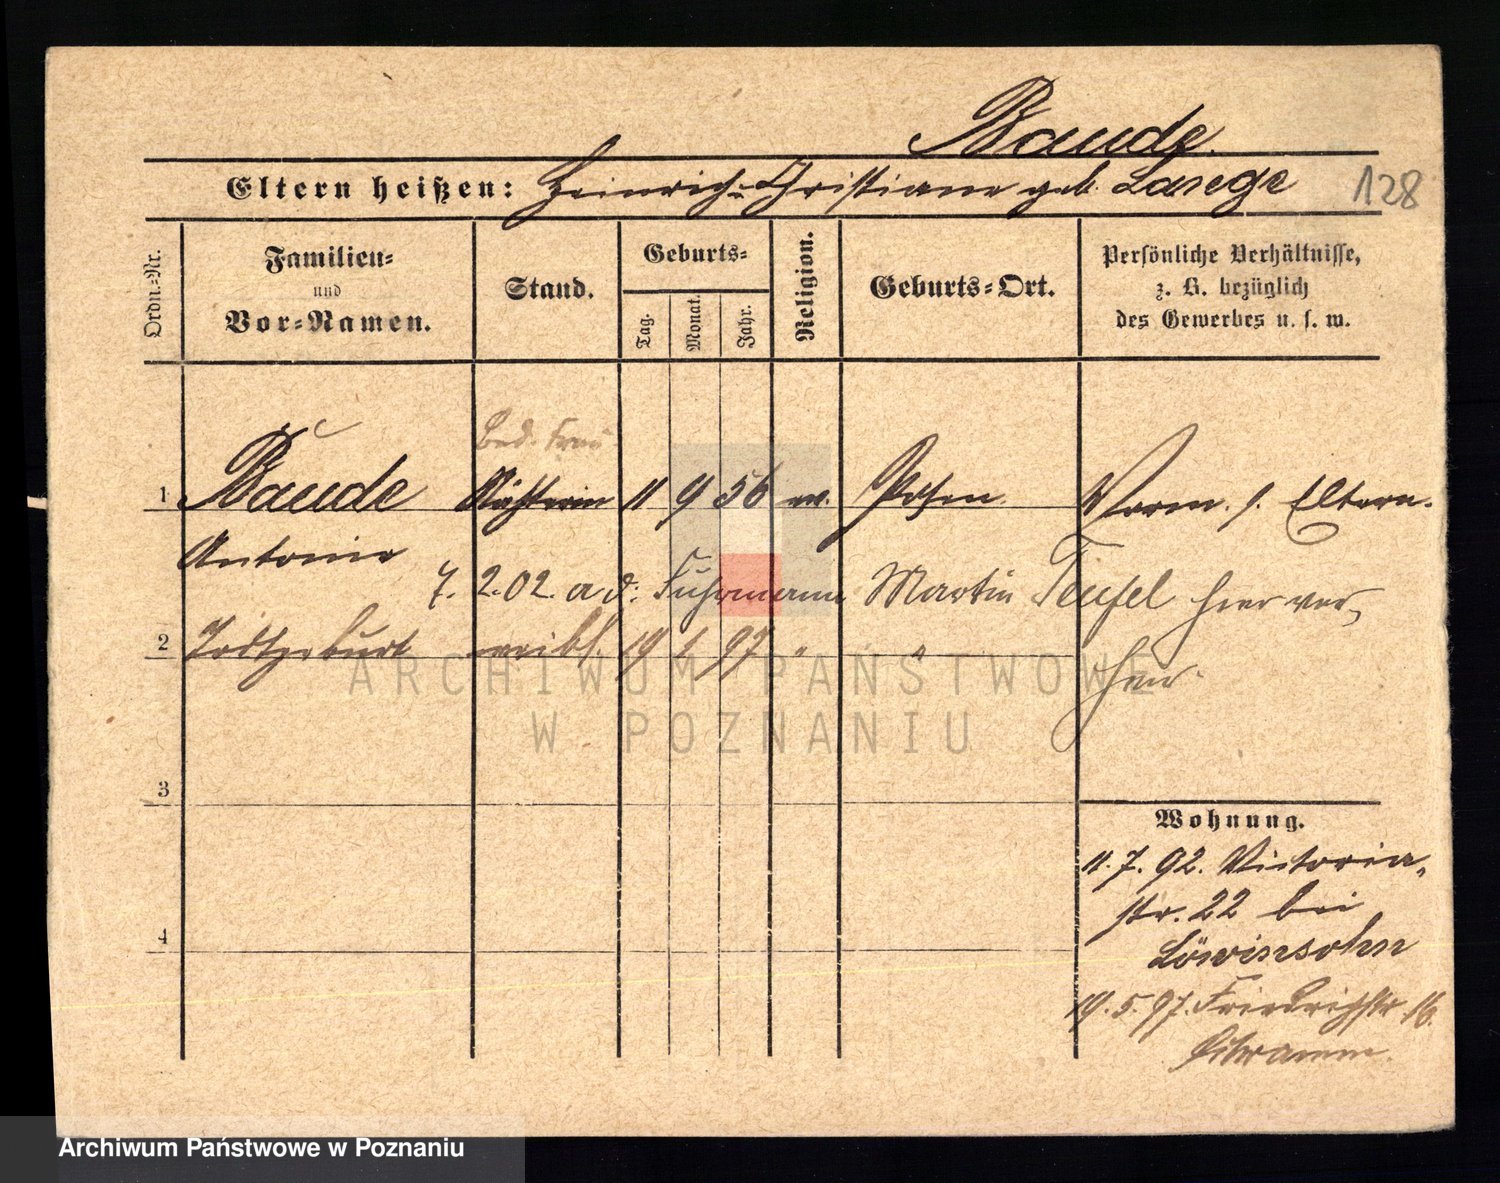 Baude.
Eltern heißen: Heinrich u. Christiane geb. Lange
128
Ordn.-Nr.
Familien-
und
Vor-Namen.
Stand.
Geburts-
Tag.
Monat.
Jahr.
Religion.
Geburts-Ort.
Persönliche Verhältnisse,
z. B. bezüglich
des Gewerbes u. s. w.
Bed. Frau
1 Baude Nähterin 11 9 56 ev. Posen Eltern.
Antonie
7. 2.02. a d. Fuhrmann Martin Teufel hier ver-
2 Todtgeburt weibl. 19 1. 97 " "
heir.
3
4
Wohnung.
11.7.92. Victoria-
str. 22 bei
Löwinsohn
19.5.97. Friedrichstr. 16.
ARCHIWUM PAŃSTWOWE
W POZNANIU
Archiwum Państwowe w Poznaniu